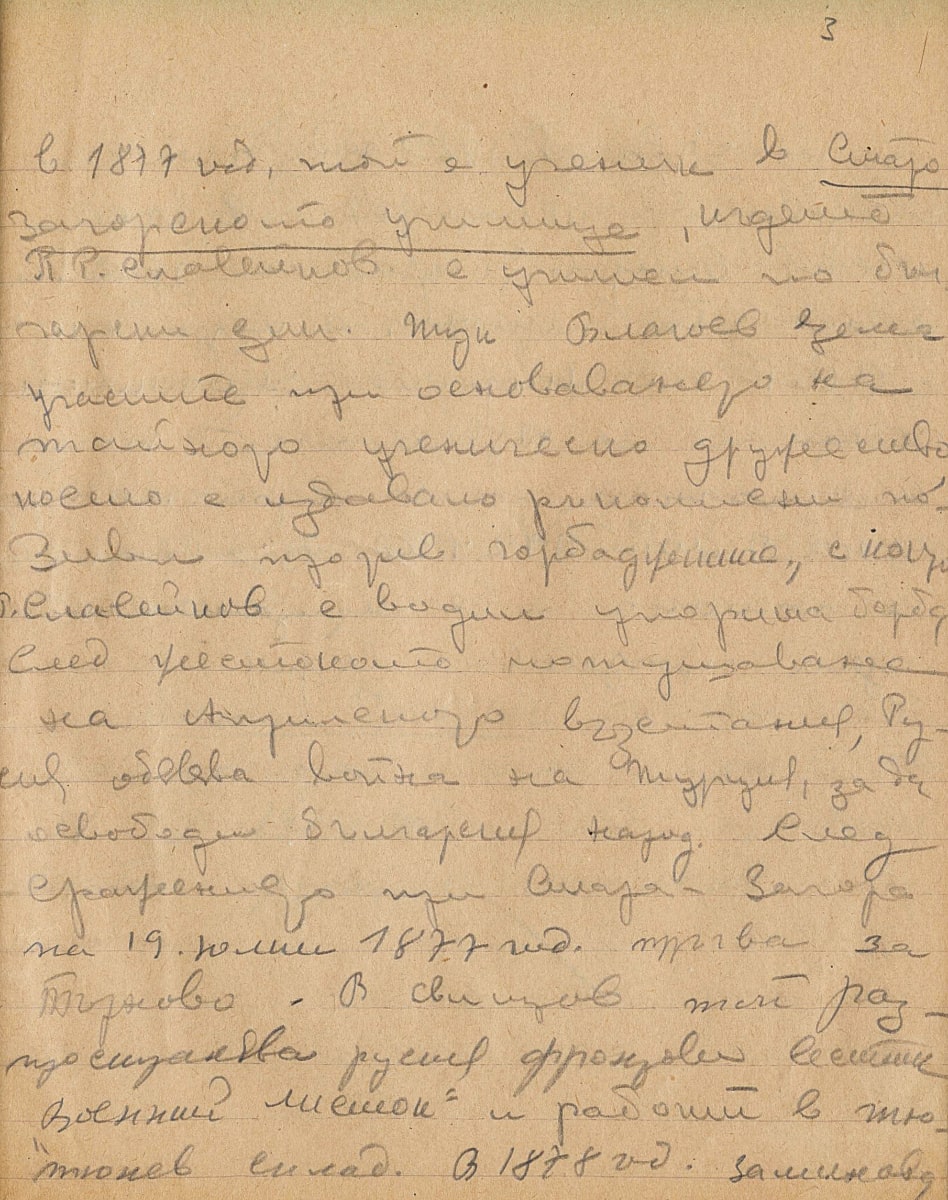 3
в 1877 год. той е ученик в Старо
загорското училище, където
П. Р. Славейков е учител по бъл
гарски език. Тук Благоев взема
участие при основаването на
тайното ученическо дружество
което е издавало ръкописни по-
зиви против чорбаджиите, с които
Р. Славейков е водил упорита борба
След жестокото потушаване
на Априлското въстание, Ру-
сия обявява война на Турция, за да
освободи българския народ. След
сражението при Стара-Загора
на 19. юлий 1877 год. тръгва за
Търново - В Свищов той раз-
пространява руския фронтови вестник
Военний листок" и работи в тю-
"тюнев склад. В 1878 год. заминава